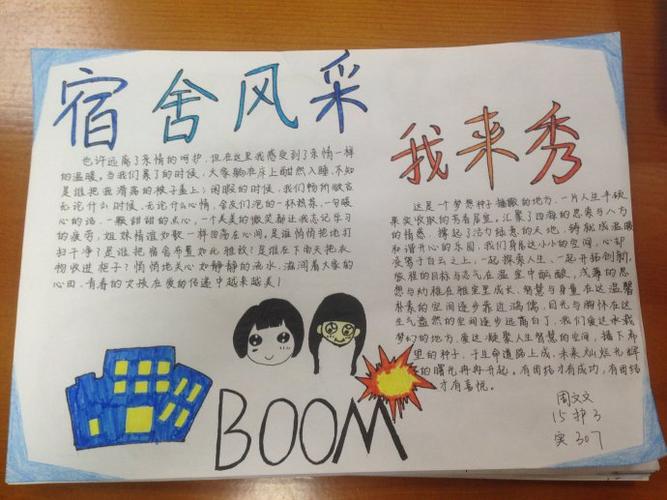 宿舍风采
我来秀
也许远离了亲情的呵护,但在这里我感受到了亲情一样
的温暖。当我们累了的时候,大家躺在床上酣然入睡,不知
是谁把我滑落的被子盖上;闲暇的时候,我们畅所欲言
无论什么时候,无论什么心情,舍友们泡的一杯热茶,一句暖
心的话,一颗甜甜的点心,一个美美的微笑都让我忘记学习
的疲劳,姐妹情谊如歌一样回荡在心间,是谁悄悄把地打
扫干净了是谁把宿舍布置如此雅致?是谁在下雨天把衣
物收进柜子?悄悄地关心如静静的流水,滋润着大家的
心田,青春的女孩在爱的传递中越来越美!
这是个梦想种子播撒的地方,一片人生丰硕
果实收获的芳香厚重。汇聚了四海的思索与八方
的情感,撑起了活力结患的天地,铸就成温暖
和谐开心的乐园,我们身居这小小的空间,心却
凌驾于白云之上,一起探索人生、一起开拓创新,
旅程的目标与志气在温室中酝酿,浅薄的思
想与幼稚在雅室里成长,智慧与身量在这温馨
朴素的空间逐步靠近满儒,目光与胸怀在这
生气盎然的空间逐步远离自了,我们爱这承载
梦幻的地方,爱这凝聚人生智慧的空间,播下希
里的种子,于生命道路上成,未来灿烂光辉
的曙光冉冉升起。有团结才有成功,有团结
才有喜悦。
BOOM
周文文
15护3
实307